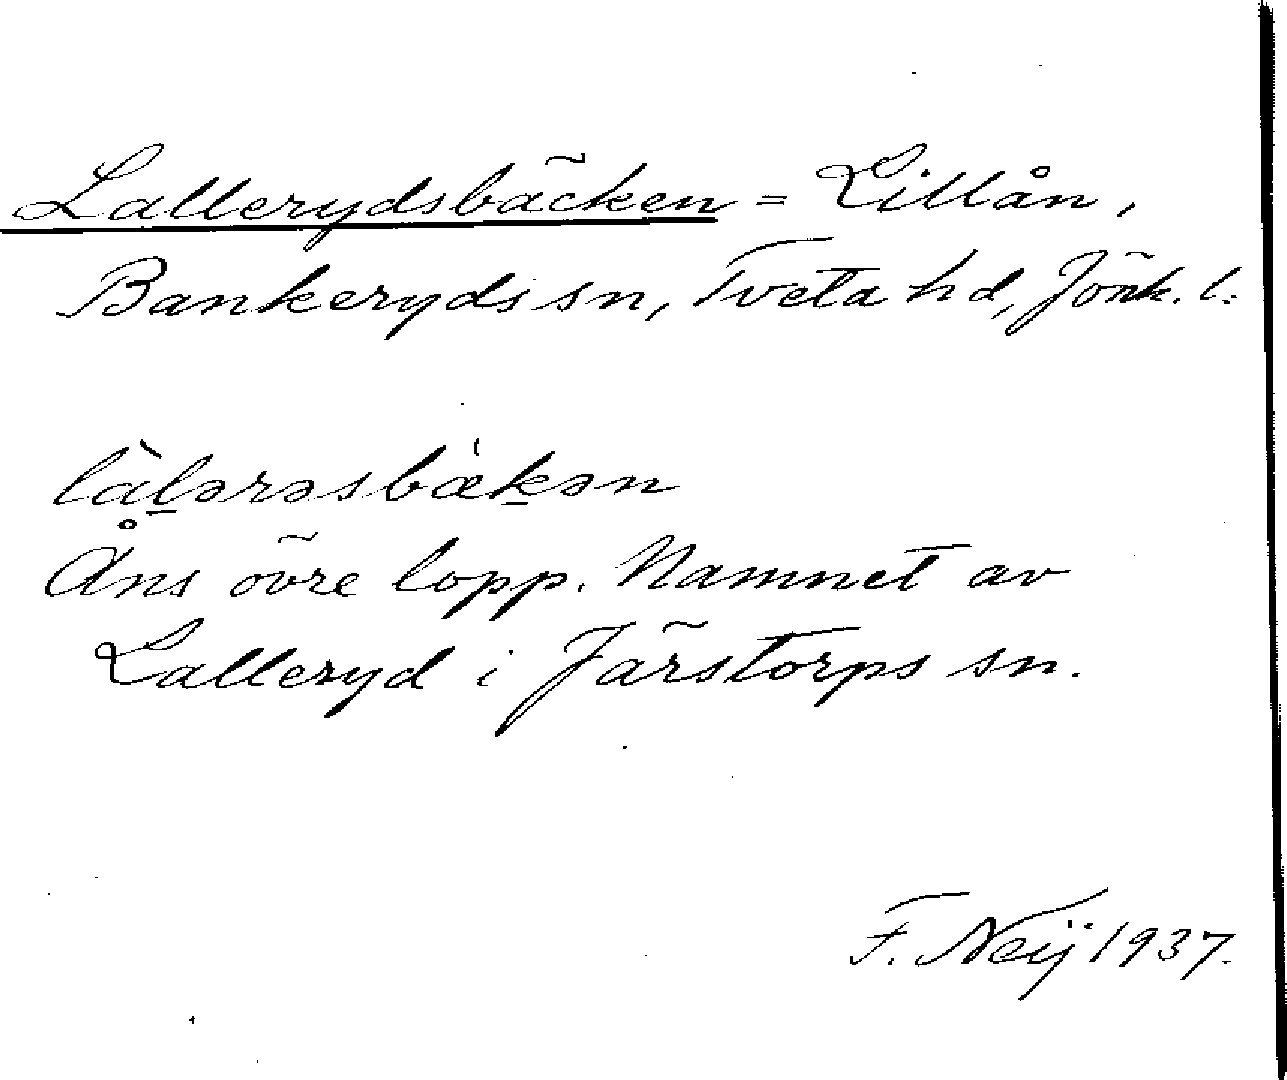 Lallerydsbäcken = Lillån,
Bankeryds sn, Tveta hd, Jönk. l.
là̱lərəsbæ̀ḵən
Åns övre lopp. Namnet av
Lalleryd i Järstorps sn.
F. Neij 1937.